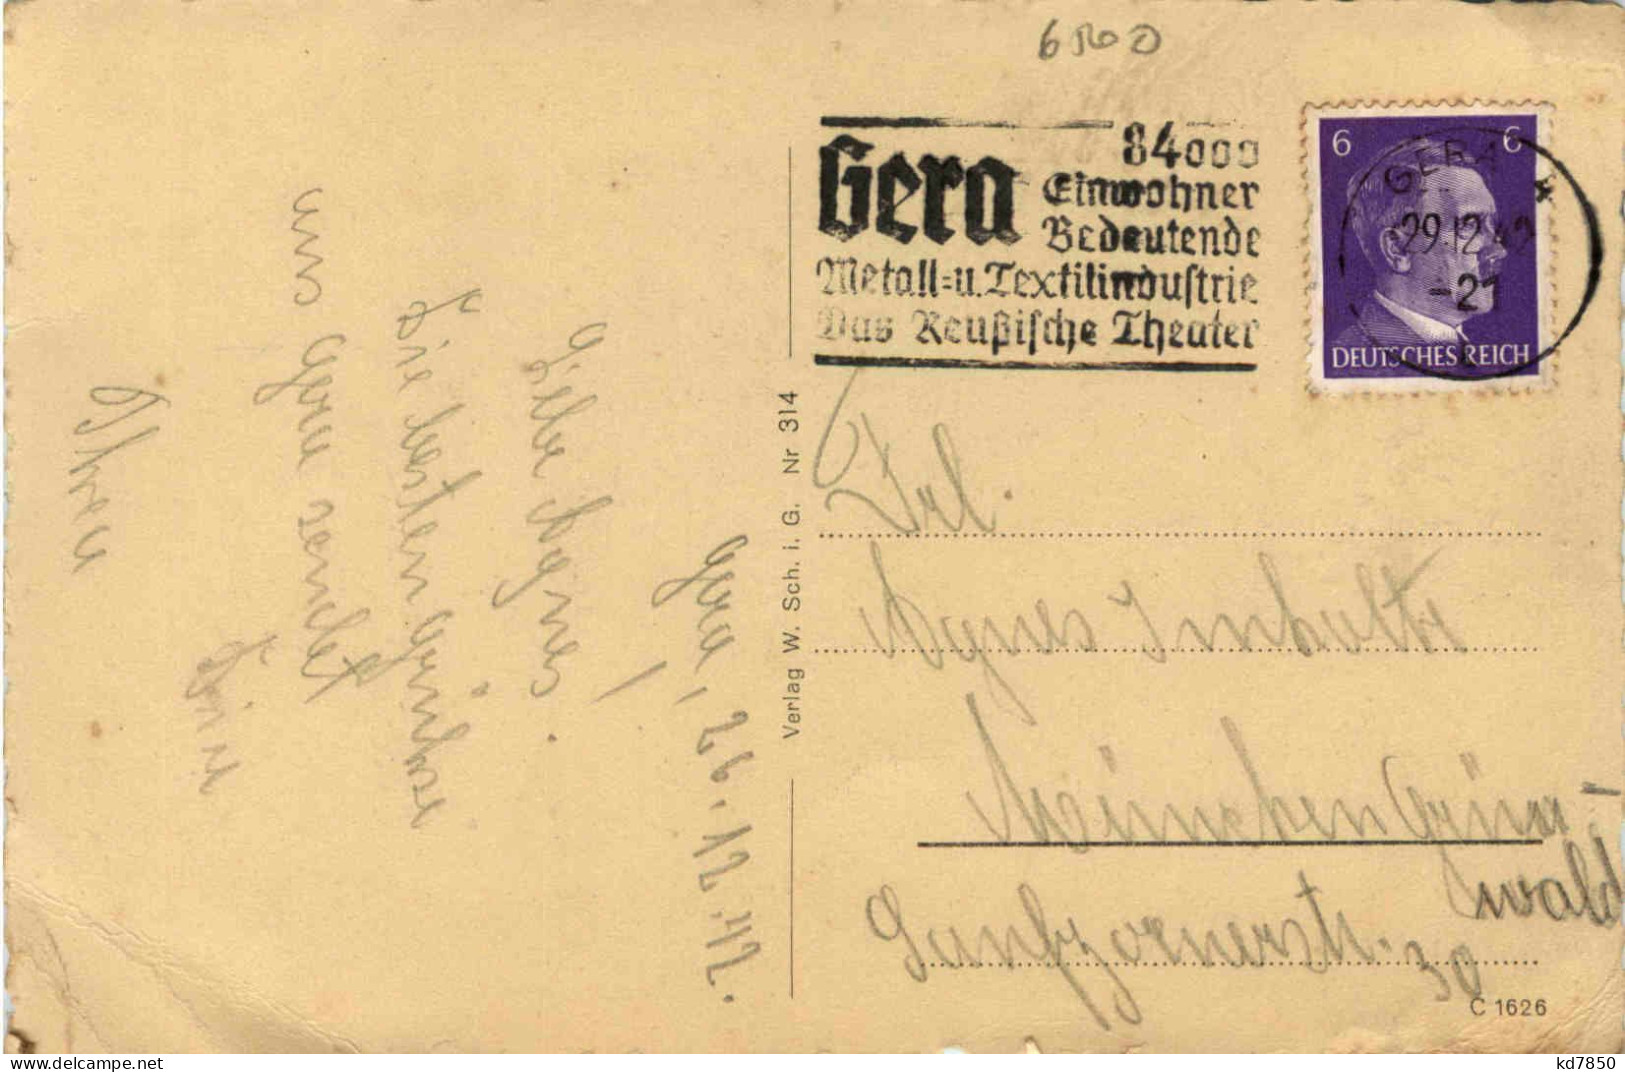 Gera, 26.12.42.
Liebe Agnes!
Die besten Grüsse
aus Gera sendet
Ihnen
6
Gera
84000
Einwohner
Bedeutende
Metall=u.Textilindustrie
Das Reußische Theater
6 6
DEUTSCHES REICH
GERA 4
29.12.42
-21
Verlag W. Sch. i. G. Nr 314
Frl.
Agnes
München Grün-
wald
30
C 1626
www.delcampe.net
kd7850